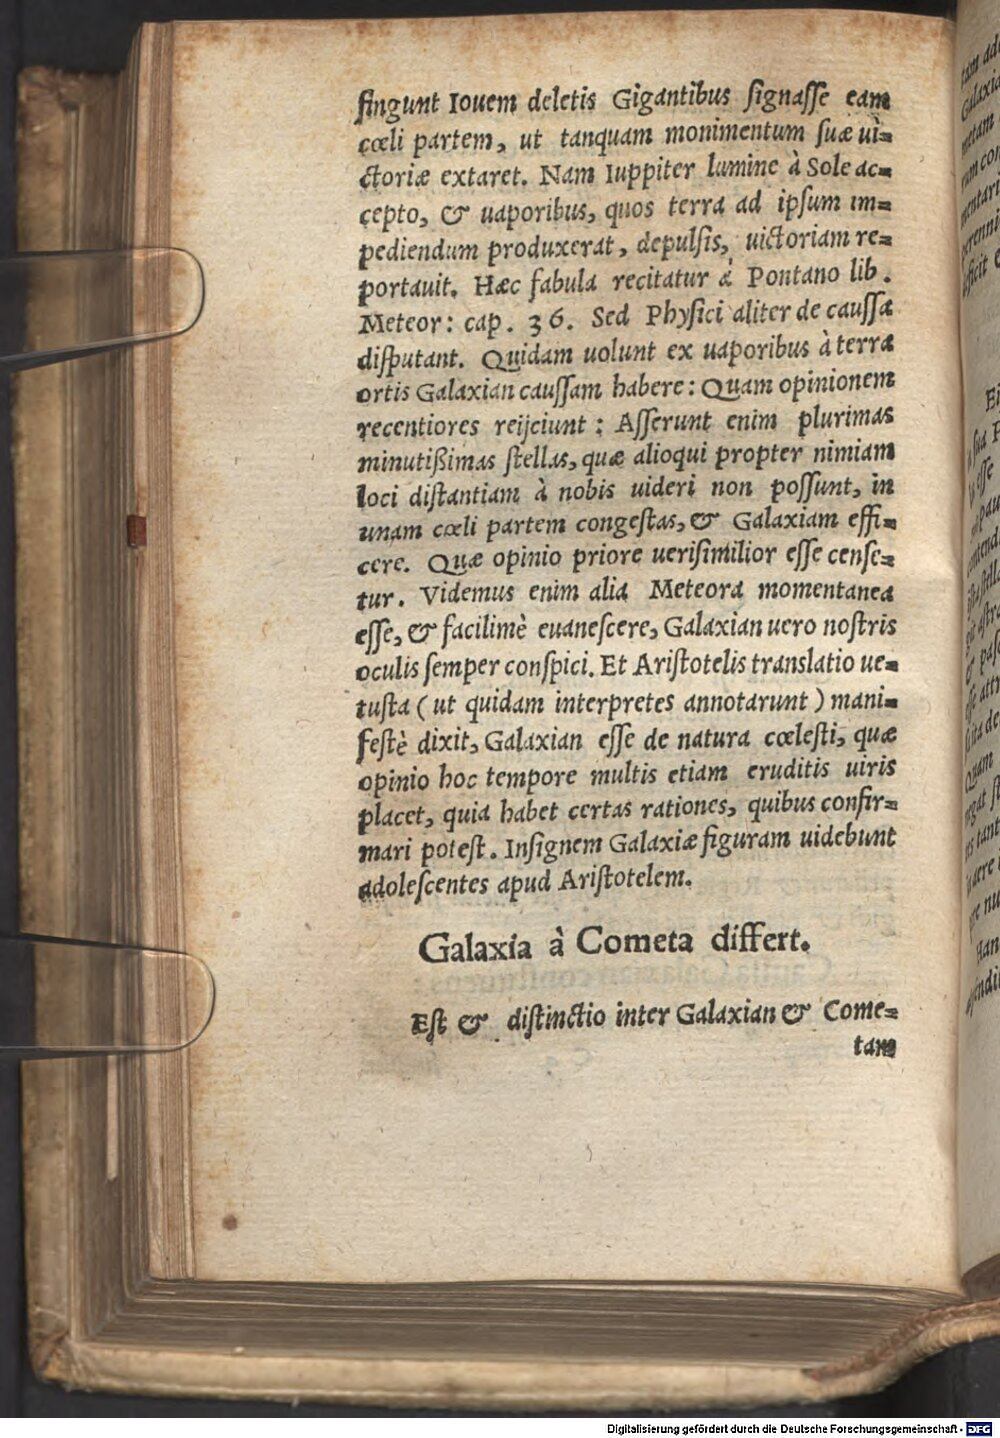 fingunt Iouem deletis Gigantibus signasse eam
cœli partem, ut tanquam monimentum suæ ui=
ctoriæ extaret. Nam Iuppiter lumine à Sole ac=
cepto, & uaporibus, quos terra ad ipsum im=
pediendum produxerat, depulsis, uictoriam re=
portauit. Hæc fabula recitatur à Pontano lib.
Meteor: cap. 36. Sed Physici aliter de caussa
disputant. Quidam uolunt ex uaporibus à terra
ortis Galaxian caussam habere: Quam opinionem
recentiores reijciunt: Asserunt enim plurimas
minutißimas stellas, quæ alioqui propter nimiam
loci distantiam à nobis uideri non possunt, in
unam cœli partem congestas, & Galaxiam effi=
cere. Quæ opinio priore uerisimilior esse cense=
tur. Videmus enim alia Meteora momentanea
esse, & facilimè euanescere, Galaxian uero nostris
oculis semper conspici. Et Aristotelis translatio ue=
tusta (ut quidam interpretes annotarunt) mani=
festè dixit, Galaxian esse de natura cœlesti, quæ
opinio hoc tempore multis etiam eruditis uiris
placet, quia habet certas rationes, quibus confir=
mari potest. Insignem Galaxiæ figuram uidebunt
adolescentes apud Aristotelem.
Galaxia à Cometa differt.
Est & distinctio inter Galaxian & Come=
tam
Digitalisierung gefördert durch die Deutsche Forschungsgemeinschaft - DFG